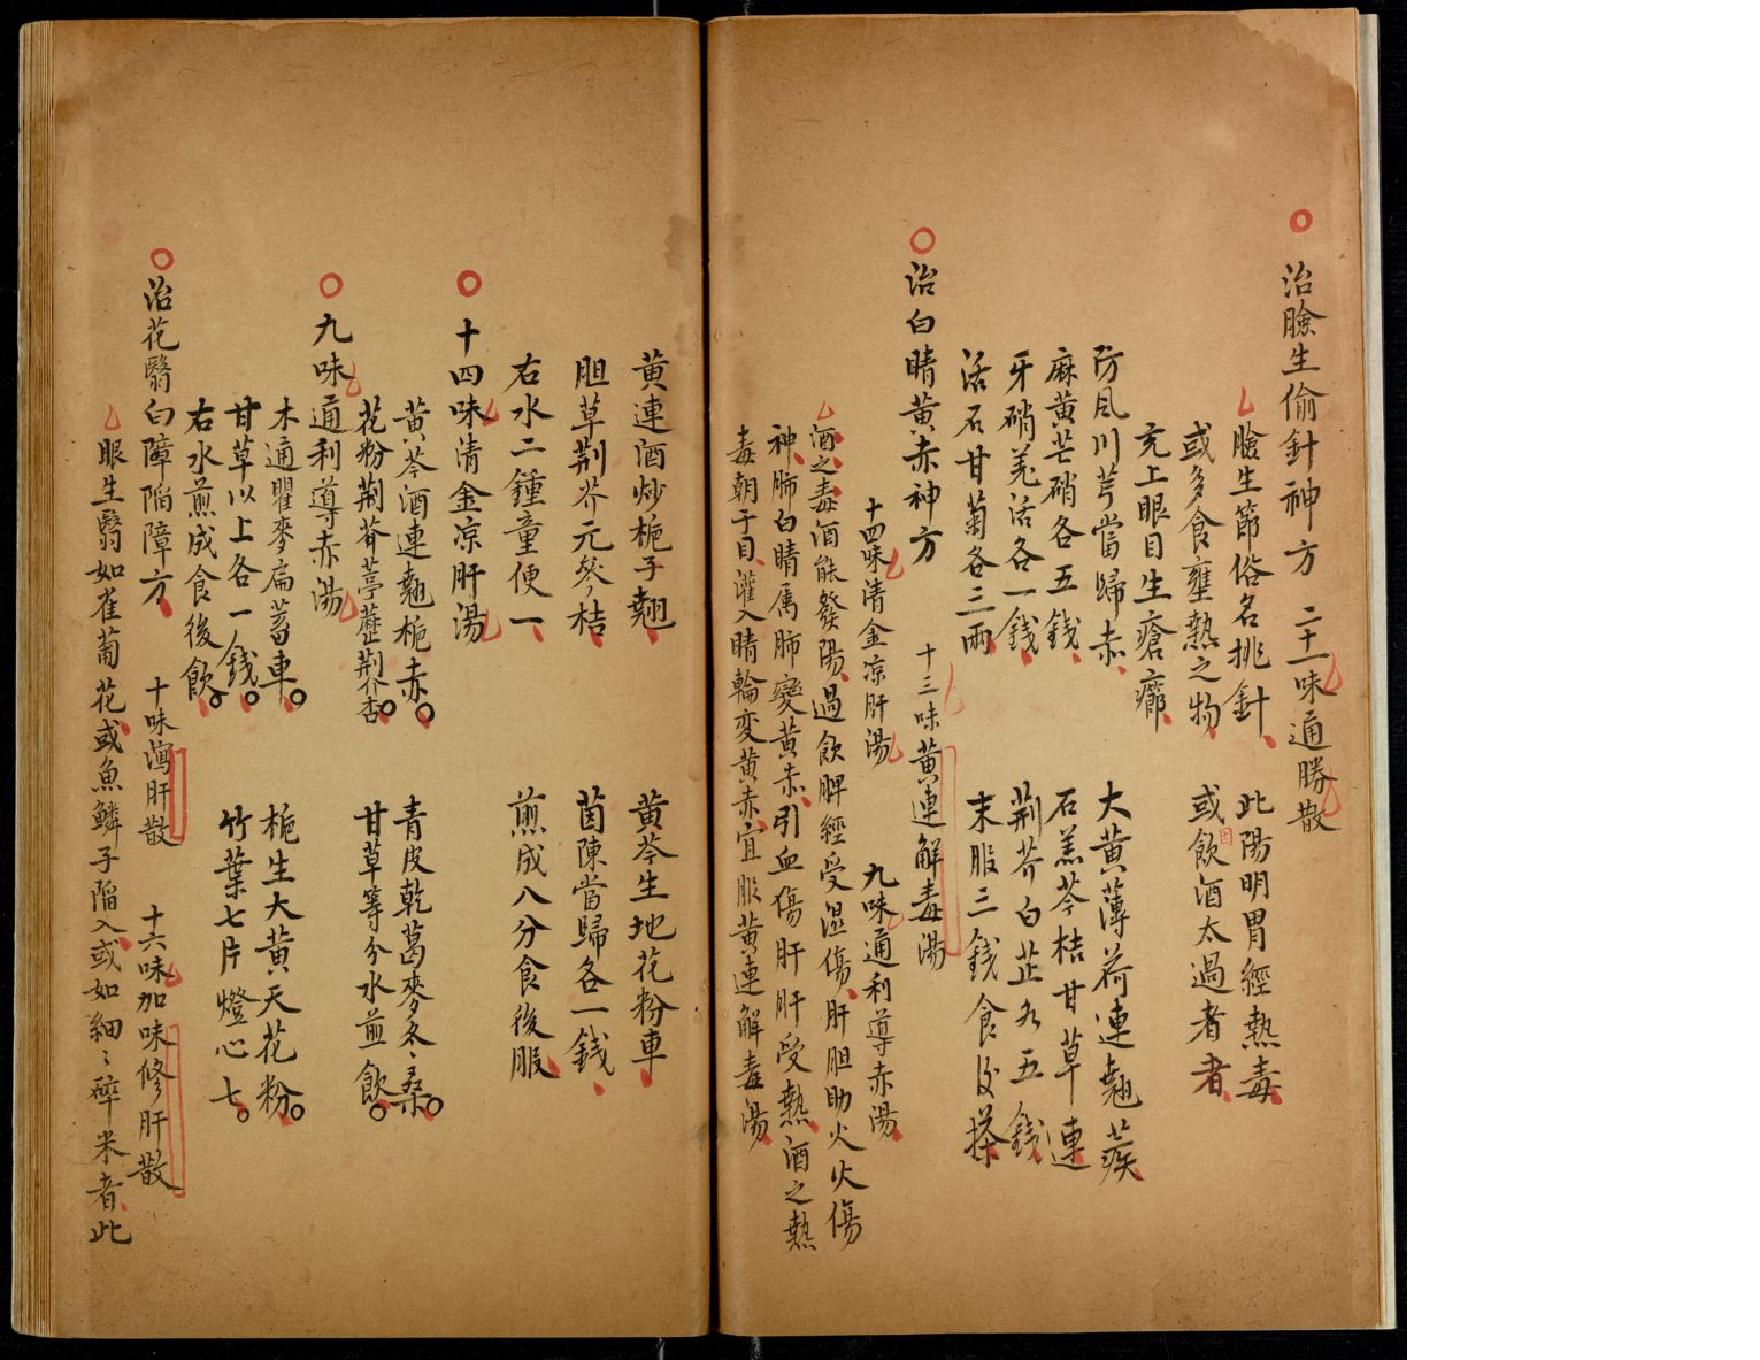 治臉生偷針神方 二十一味通勝散
臉生節俗名挑針 此陽明胃經熱毒
或多食壅熱之物 或飲酒太過者者
充上眼目生瘡癤
防風川芎當歸赤 大黃薄荷連翹蒺
麻黃芒硝各五錢 石羔芩桔甘草連
牙硝羌活各一錢 荆芥白芷各五錢
活石甘菊各三兩 末服三錢食後搽
治白睛黃赤神方 十三味黃連解毒湯
十四味清金凉肝湯 九味通利導赤湯
酒之毒酒能發陽過飲脾經受濕傷肝胆助火火傷
神肺白睛属肺變黃赤引血傷肝肝受熱酒之熱
毒朝于目灌入睛輪变黃赤宜服黃連解毒湯
黃連酒炒梔子翹 黃芩生地花粉車
胆草荆芥元參桔 茵陳當歸各一錢
右水二鍾童便一 煎成八分食後服
十四味清金凉肝湯
黃芩酒連翹梔赤 青皮乾葛麥冬桑
花粉荆芥葶藶荆介杏 甘草等分水煎飲
九味通利導赤湯
木通瞿麥扁蓄車 梔生大黃天花粉
甘草以上各一錢 竹葉七片燈心七
右水煎成食後飲
治花翳白障陷障方 十味瀉肝散 十六味加味修肝散
眼生翳如雀葡花或魚鱗子陷入或如細〻碎米者此